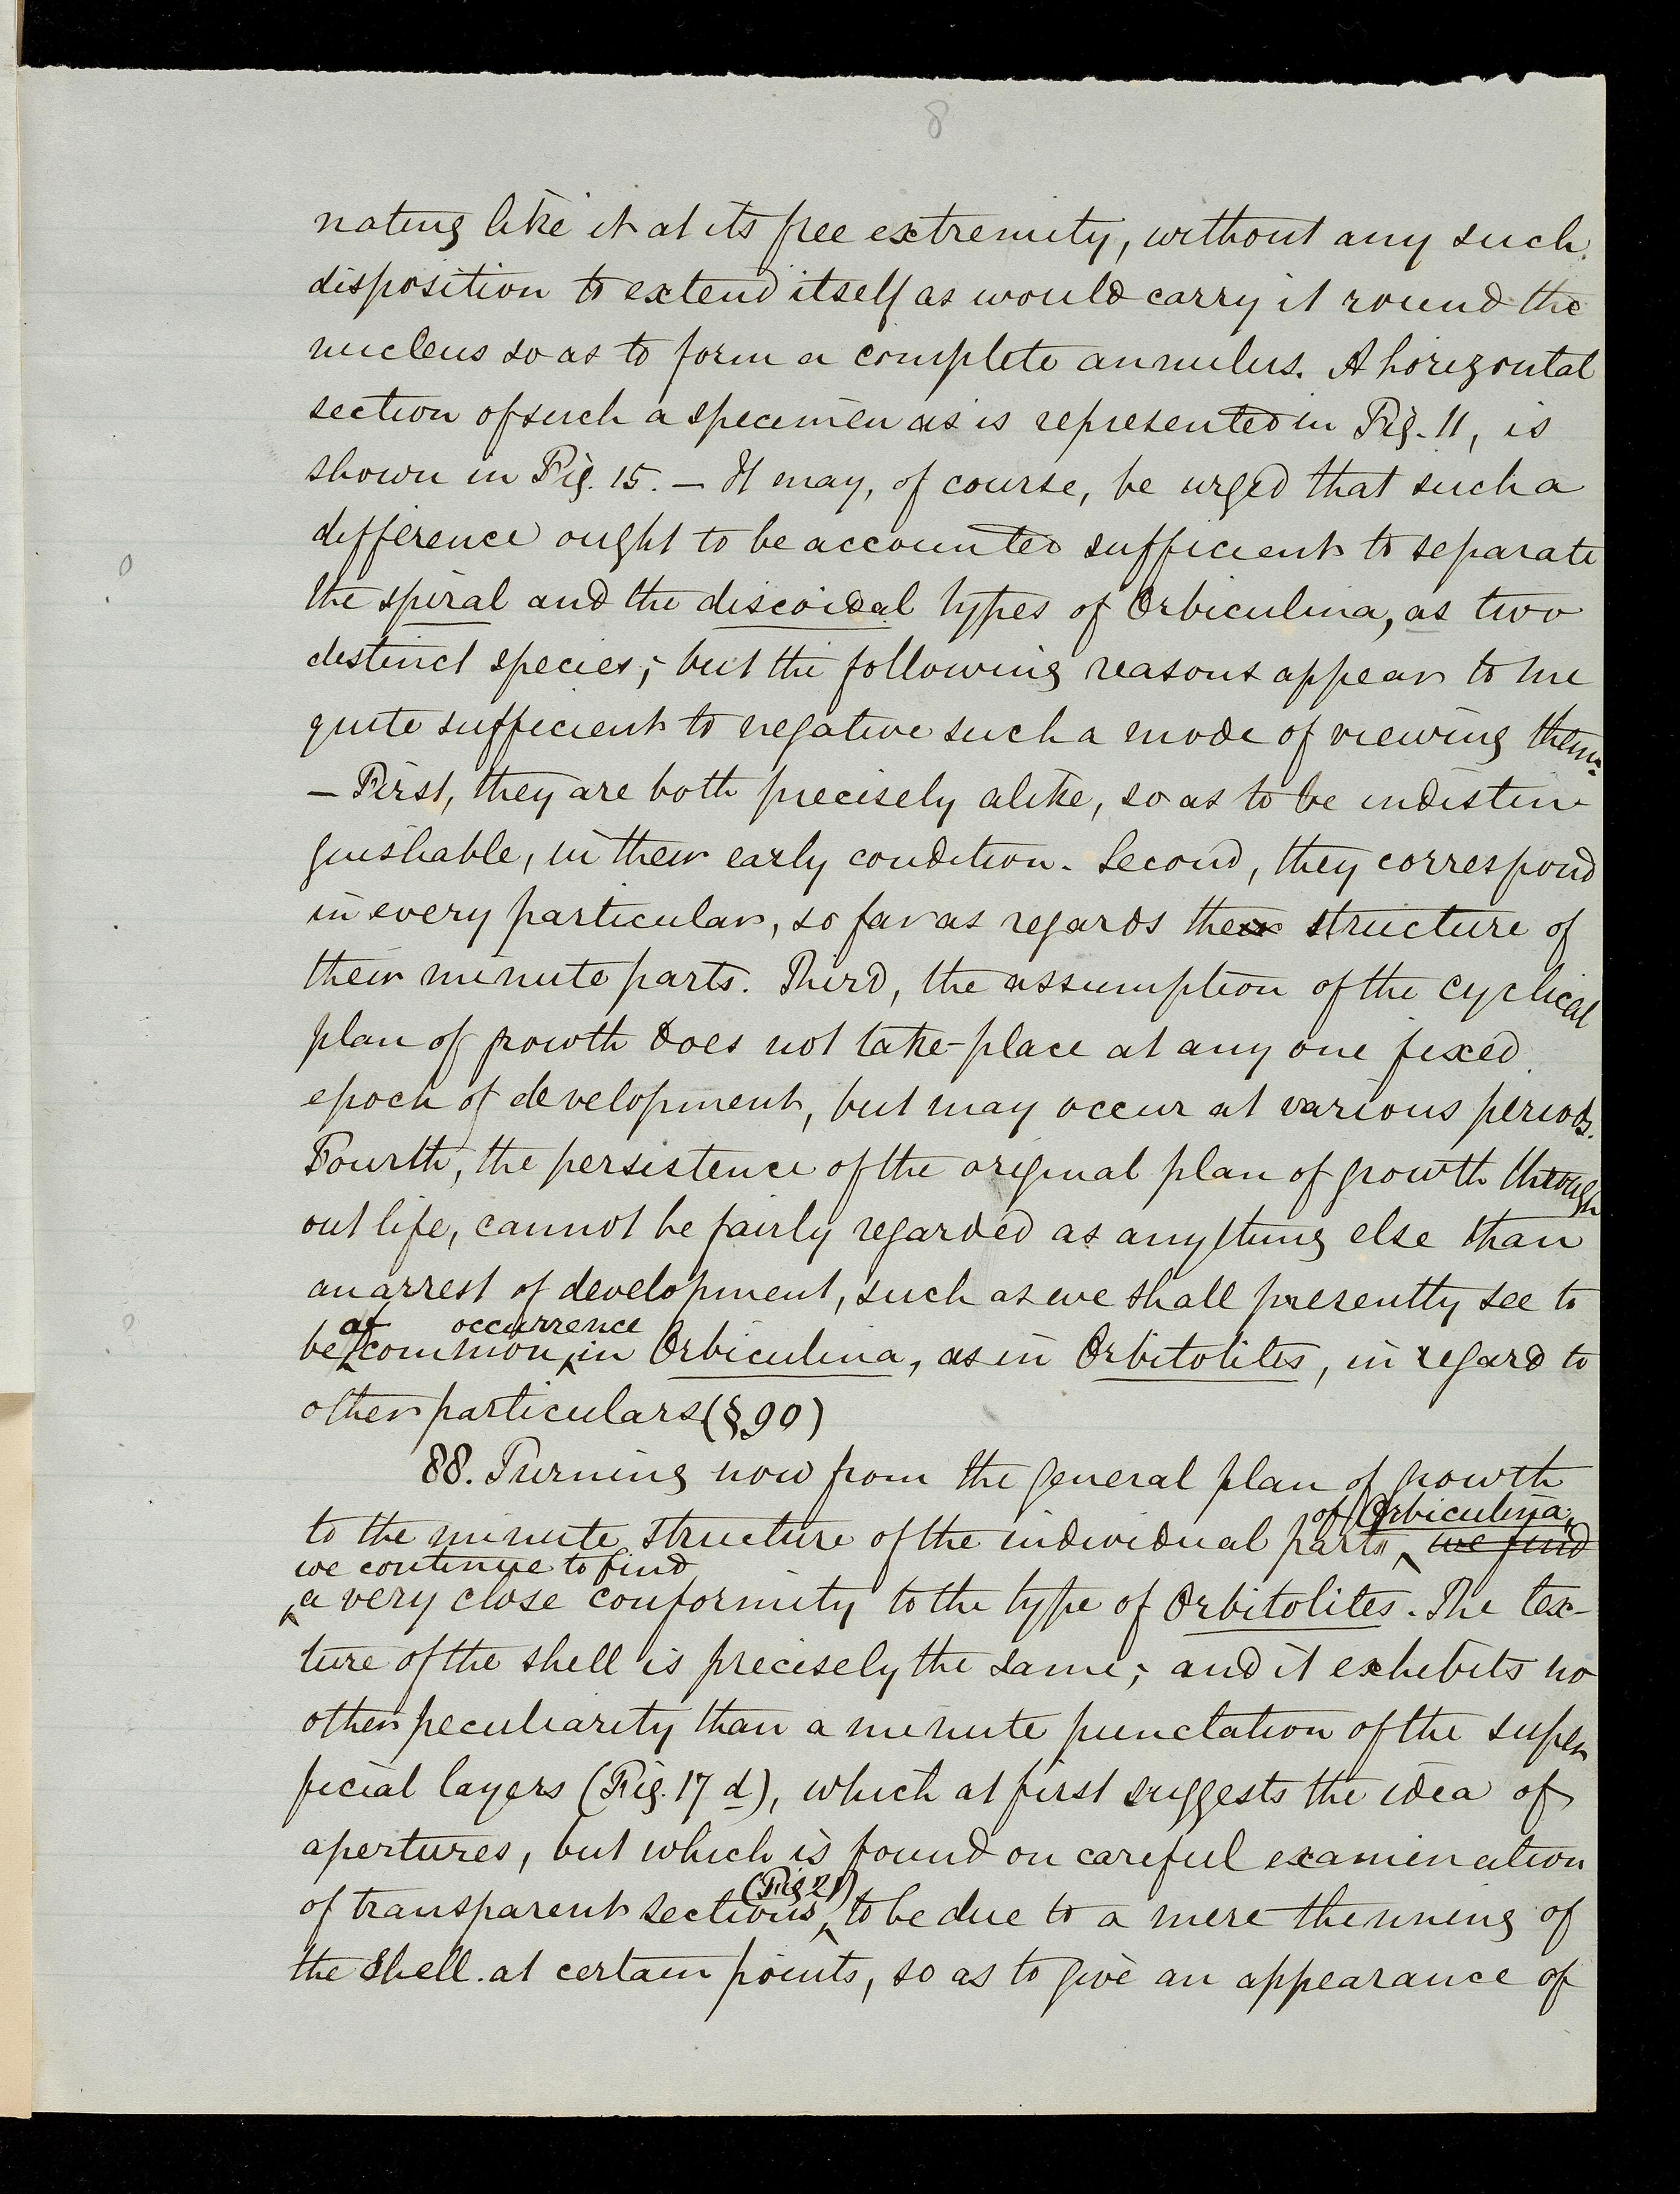 8
nating like it at its free extremity, without any such
disposition to extend itself as would carry it round the
nucleus so as to form a complete annulus. A horizontal
section of such a specimen as is represented in Fig. 11, is
shown in Fig. 15. — It may, of course, be urged that such a
difference ought to be accounted sufficient to separate
the spiral and the discoidal types of Orbiculina, as two
distinct species; but the following reasons appear to me
quite sufficient to negative such a mode of viewing them.
— First, they are both precisely alike, so as to be indistin
guishable, in their early condition. Second, they correspond
in every particular, so far as regards the structure of
their minute parts. Third, the assumption of the cyclical
plan of growth does not take-place at any one fixed
epoch of development, but may occur at various periods.
Fourth, the persistence of the original plan of growth through
out life, cannot be fairly regarded as anything else than
an arrest of development, such as we shall presently see to
be of common occurrence in Orbiculina, as in Orbitolites, in regard to
other particulars (§ 90)
88. Turning now from the general plan of growth
to the minute structure of the individual parts of Orbiculina, we find
we continue to find
a very close conformity to the type of Orbitolites. The tex-
ture of the shell is precisely the same; and it exhibits no
other peculiarity than a minute punctation of the super
ficial layers (Fig. 17 d), which at first suggests the idea of
apertures, but which is found on careful examination
of transparent sections (Fig 21) to be due to a mere thinning of
the shell at certain points, so as to give an appearance of